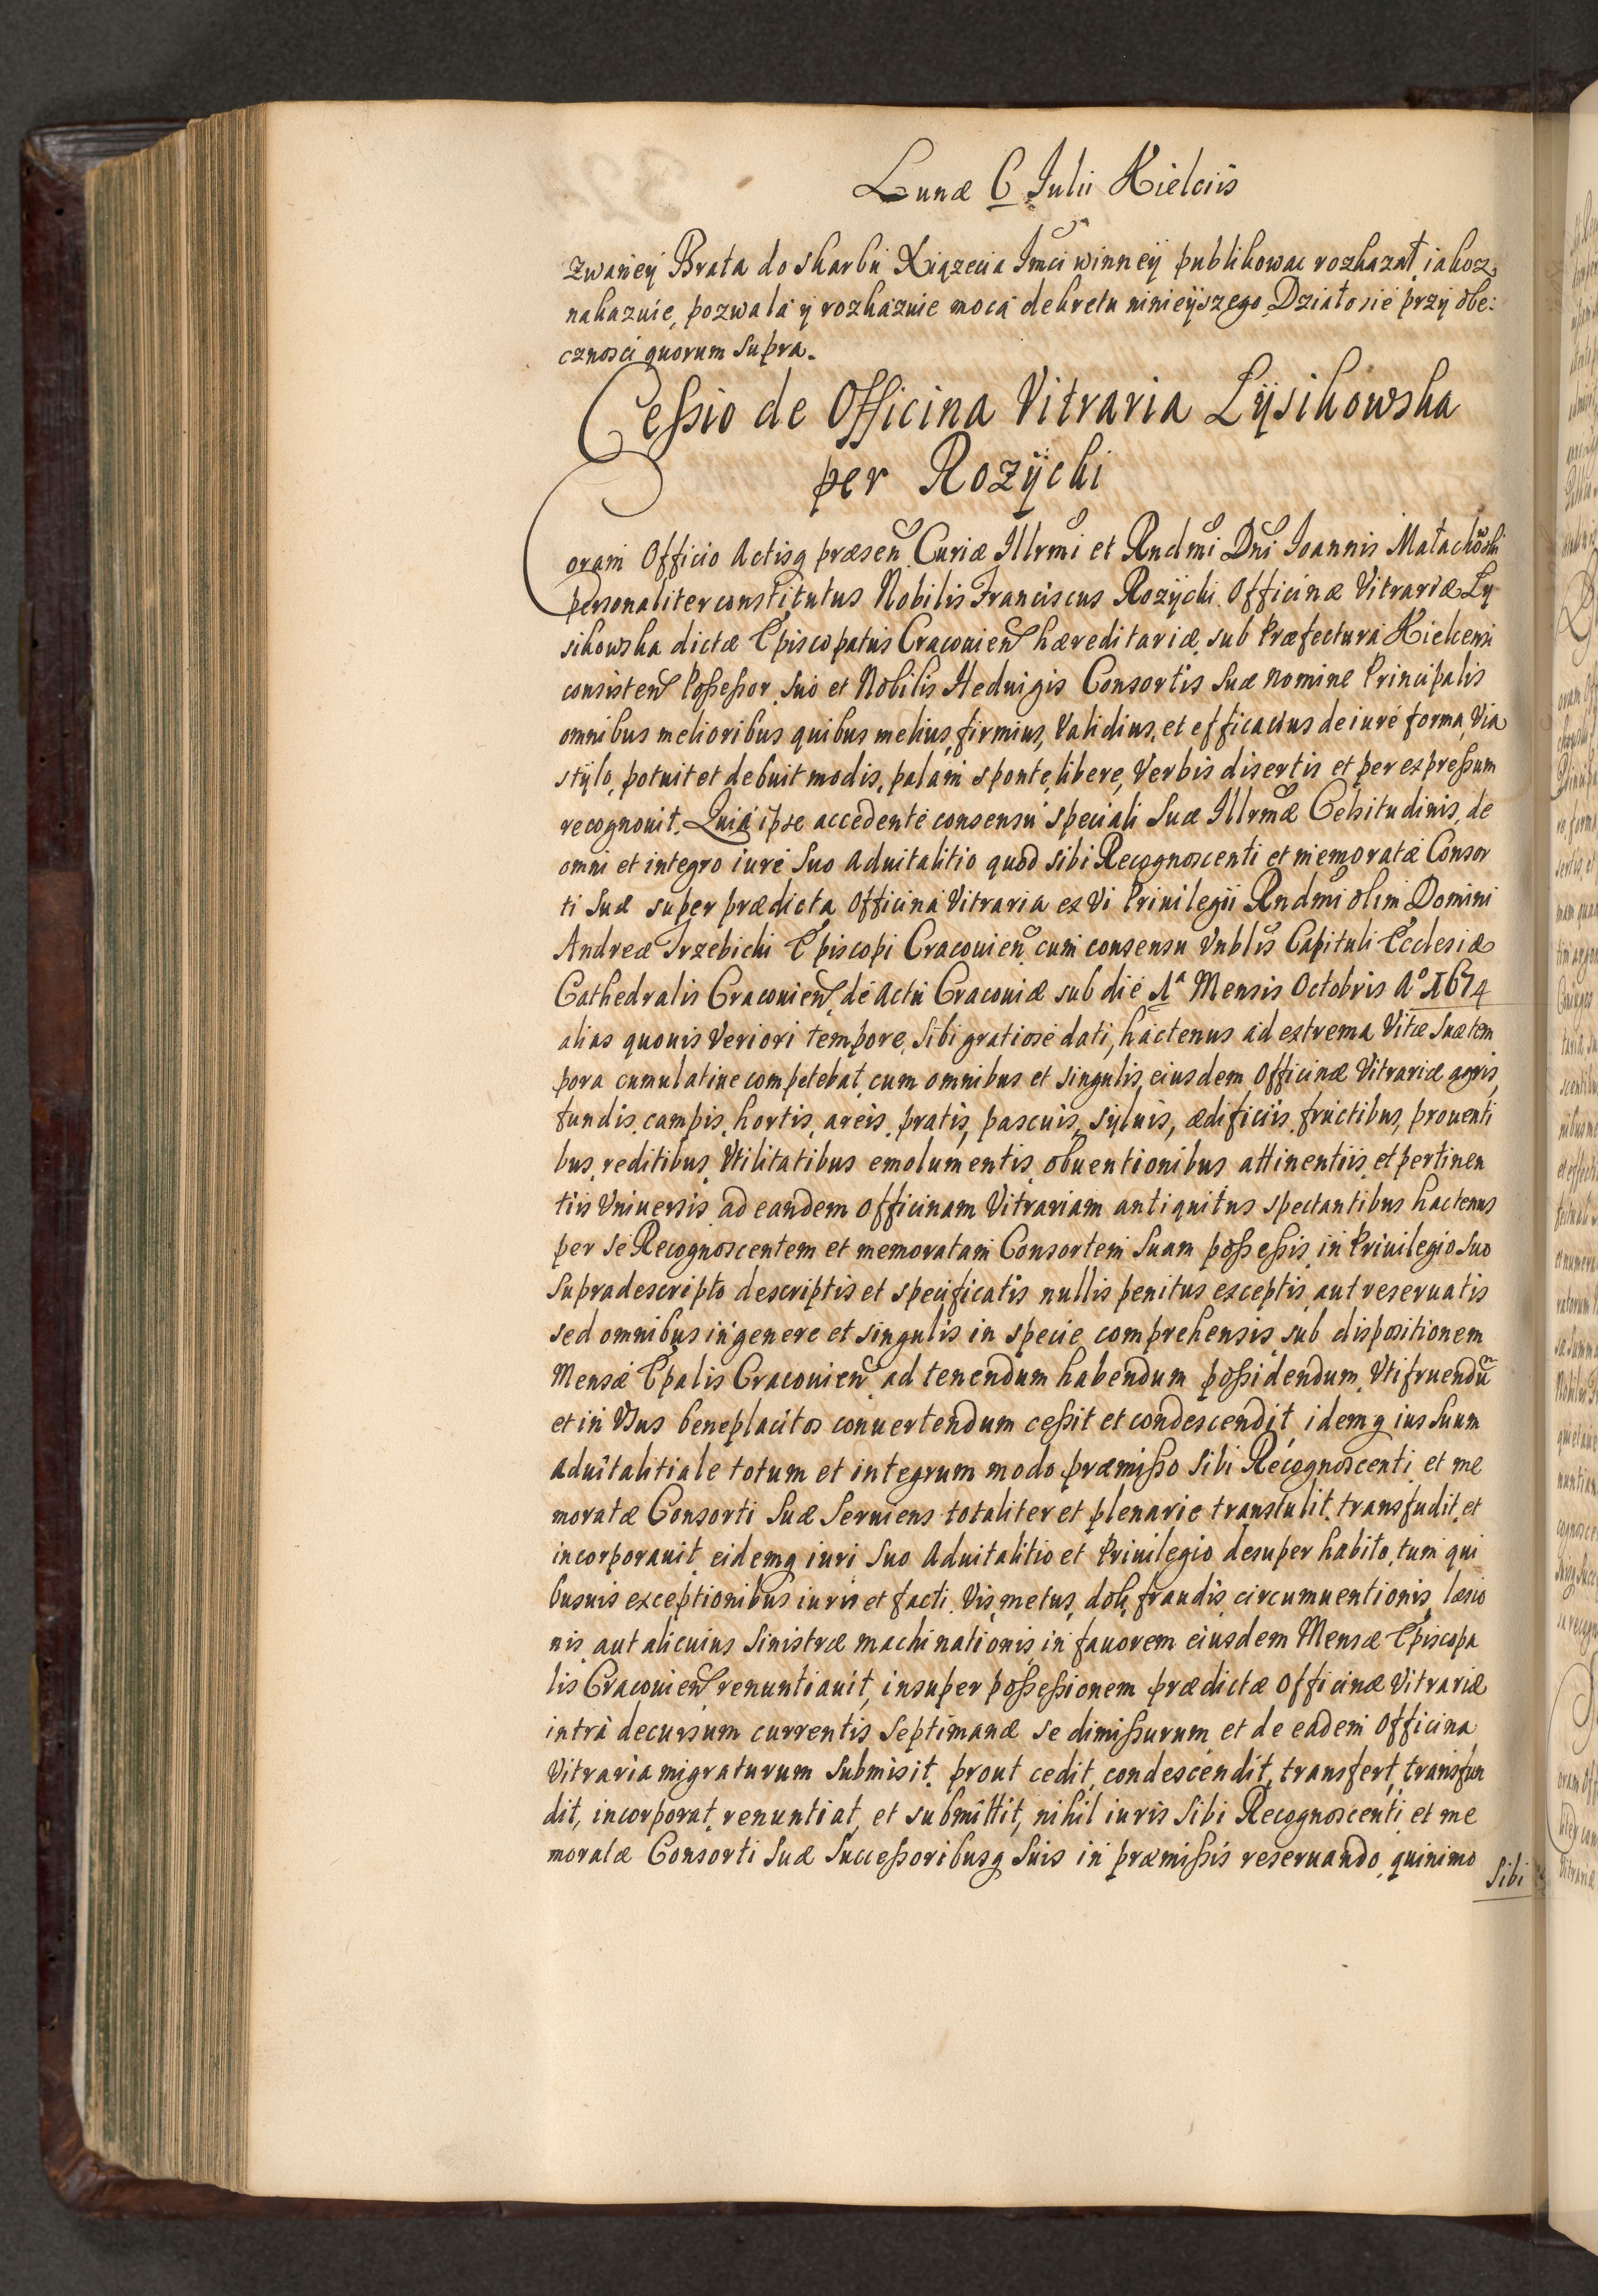 Lunæ 6 Julii Kielciis
zwaney Brata do skarbu Xiązecia Jmci winney publikowac rozkazał, iakoz
nakazuie, pozwala y rozkazuie mocą dekretu ninieyszego. Działo sie przy obe:
cznosci quorum supra.
Cessio de Officina Vitraria Łysikowska
per Rozycki
Coram Officio Actisq præsen Curiæ Illrmi et Rndmi Dni Joannis Małachoski
personaliter constitutus Nobilis Franciscus Rozycki Officinæ Vitrariæ Ły
sikowska dictæ Episcopatus Cracouien hæreditariæ, sub Præfectura Kielcensi
consisten Possessor, suo et Nobilis Heduigis Consortis Suæ nomine Principalis
omnibus melioribus quibus melius, firmius, Validius, et efficacius de iure forma, Via
stylo, potuit et debuit modis, palam sponte, libere, Verbis disertis et per expressum
recognouit. Quia ipse accedente consensu speciali Suæ Illrmæ Celsitudinis, de
omni et integro iure Suo Aduitalitio quod sibi Recognoscenti et memoratæ Consor
ti Suæ super prædicta Officina Vitraria ex Vi Priuilegii Rndmi olim Domini
Andreæ Trzebicki Episcopi Cracouien cum consensu Vnblis Capituli Ecclesiæ
Cathedralis Cracouien, de Actu Cracouiæ sub die 1ª Mensis Octobris Aº 1674
alias quouis Veriori tempore, sibi gratiose dati, hactenus ad extrema Vitæ suæ tem
pora cumulatiue competebat, cum omnibus et singulis, eiusdem Officinæ Vitrariæ agris,
fundis, campis, hortis, areis, pratis, pascuis, syluis, ædificiis, fructibus, prouenti
bus, reditibus, Vtilitatibus emolumentis, obuentionibus attinentiis, et pertinen
tiis Vniuersis, ad eandem Officinam Vitrariam antiquitus spectantibus hactenus
per se Recognoscentem et memoratam Consortem Suam possessis, in Priuilegio Suo
supradescripto descriptis et specificatis nullis penitus exceptis, aut reseruatis
sed omnibus in genere et singulis in specie comprehensis, sub dispositionem
Mensæ Epalis Cracouien ad tenendum habendum possidendum, Vtifruendum
et in Vsus beneplacitos conuertendum cessit et condescendit, idemq ius Suum
Aduitalitiale totum et integrum modo præmisso sibi Recognoscenti et me
moratæ Consorti Suæ Seruiens totaliter et plenarie transtulit, transfudit, et
incorporauit, eidemq iuri Suo Aduitalitio et Priuilegio desuper habito, tum qui
busuis exceptionibus iuris et facti, Vis, metus, doli, fraudis, circumuentionis, læsio
nis, aut alicuius Sinistræ machinationis, in fauorem eiusdem Mensæ Episcopa
lis Cracouien renuntiauit, insuper possessionem prædictæ Officinæ Vitrariæ
intra decursum currentis Septimanæ se dimissurum et de eadem Officina
Vitraria migraturum Submisit, prout cedit, condescendit, transfert, transfun
dit, incorporat, renuntiat, et submittit, nihil iuris sibi Recognoscenti et me
moratæ Consorti Suæ Successoribusq Suis in præmissis reseruando, quinimo
Sibi